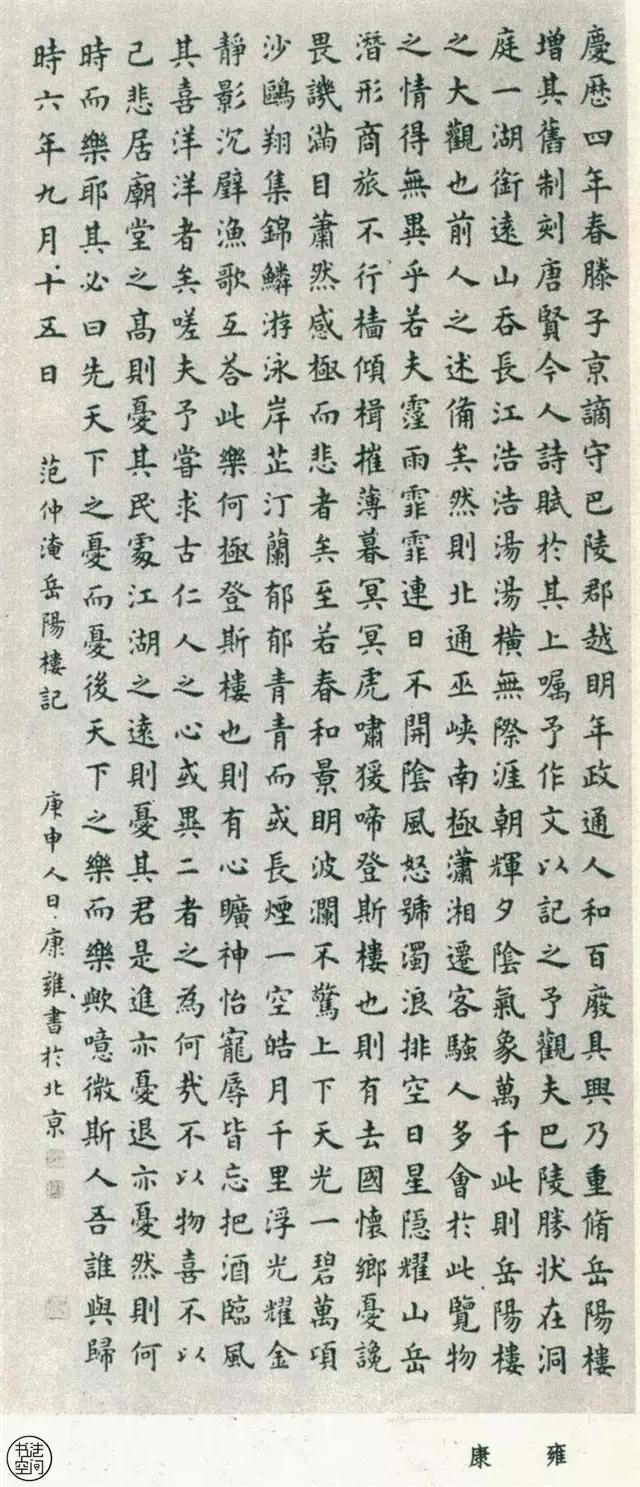 慶歷四年春滕子亰謫守巴陵郡越明年政通人和百廢具興乃重脩岳陽樓
增其舊制刻唐賢今人詩賦於其上囑予作文以記之予觀夫巴陵勝狀在洞
庭一湖銜遠山吞長江浩浩湯湯橫無際涯朝輝夕陰氣象萬千此則岳陽樓
之大觀也前人之述備矣然則北通巫峽南極瀟湘遷客騷人多會於此覽物
之情得無異乎若夫霪雨霏霏連日不開陰風怒號濁浪排空日星隱耀山岳
潛形商旅不行檣傾楫摧薄暮冥冥虎嘯猨啼登斯樓也則有去國懷鄉憂讒
畏譏滿目蕭然感極而悲者矣至若春和景明波瀾不驚上下天光一碧萬頃
沙鷗翔集錦鱗游泳岸芷汀蘭郁郁青青而或長煙一空皓月千里浮光耀金
靜影沉璧漁歌互荅此樂何極登斯樓也則有心曠神怡寵辱皆忘把酒臨風
其喜洋洋者矣嗟夫予嘗求古仁人之心或異二者之為何哉不以物喜不以
己悲居廟堂之高則憂其民處江湖之遠則憂其君是進亦憂退亦憂然則何
時而樂耶其必曰先天下之憂而憂後天下之樂而樂歟噫微斯人吾誰與歸
時六年九月十五日 范仲淹岳陽樓記 庚申人日康雍書於北亰
康 雍
书法空间